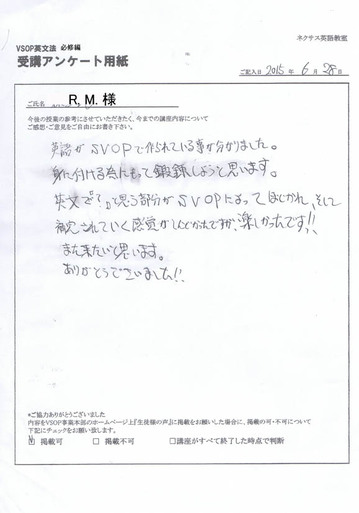 ネクサス英語教室
VSOP英文法 必修編
受講アンケート用紙
ご記入日 2015 年 6 月 28 日
ご氏名 R, M. 様
今後の授業の参考にさせていただきたく、今までの講座内容について
ご感想・ご意見をご自由にお書き下さい。
英語がSVOPで作られている事が分かりました。
身に付ける為にもって鍛錬しようと思います。
英文で?と思う部分がSVOPによってはじかれ、そして
されていく感覚がしんどかったですが、楽しかったです!!
また来たいと思います。
ありがとうございました!!
*ご協力ありがとうございました
内容をVSOP事業本部のホームページ上『生徒様の声』に掲載をお願いした場合に、掲載の可・不可について
下記にチェックをお願い致します。
☑ 掲載可 □ 掲載不可 □講座がすべて終了した時点で判断